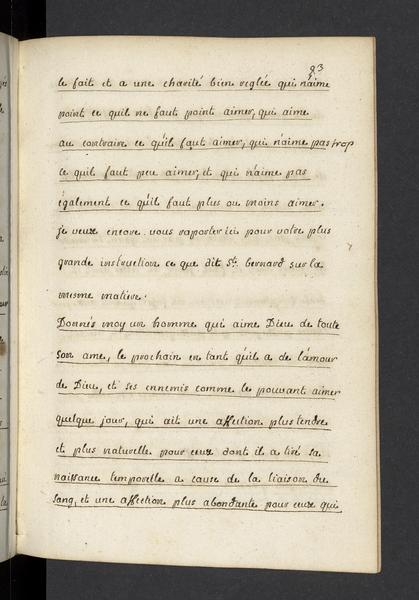 93
le fait et a une charité bien reglée qui n'aime
point ce quil ne faut point aimer, qui aime
au contraire ce qu'il faut aimer, qui n'aime pas trop
ce quil faut peu aimer, et qui n'aime pas
également ce qu'il faut plus ou moins aimer.
Je veux encore vous rapporter ici pour votre plus
grande instruction ce que dit St. bernard sur la
mesme matiere.
Donnés moy un homme qui aime Dieu de toute
son ame, le prochain en tant qu'il a de l'amour
de Dieu, et ses ennemis comme le pouvant aimer
quelque jour, qui ait une affection plus tendre
et plus naturelle pour ceux dont il a tiré sa
naissance temporelle a cause de la liaison du
sang, et une affection plus abondante pour ceux qui